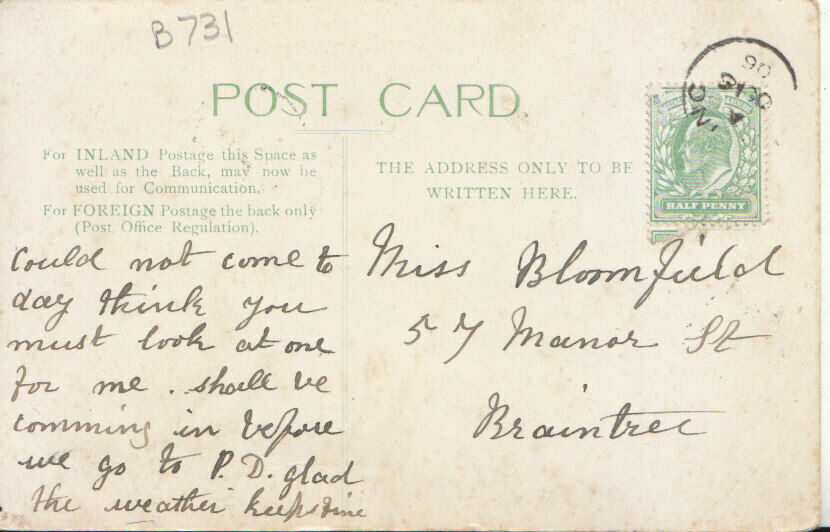 B 731
POST CARD
For INLAND Postage this Space as
well as the Back, may now be
used for Communication.
For FOREIGN Postage the back only
(Post Office Regulation).
THE ADDRESS ONLY TO BE
WRITTEN HERE.
HALF PENNY
06
A
Could not come to
day think you
must look at one
for me. shall be
comming in before
we go to P.D. glad
the weather keeps fine
Miss Bloomfield
57 Manor St
Braintree